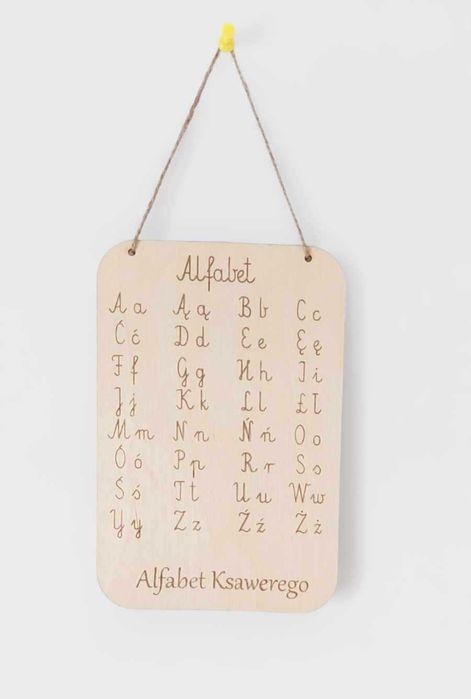 Alfabet
A a Ą ą B b C c
Ć ć D d E e Ę ę
F f G g H h I i
J j K k L l Ł ł
M m N n Ń ń O o
Ó ó P p R r S s
Ś ś T t U u W w
Y y Z z Ź ź Ż ż
Alfabet Ksawerego